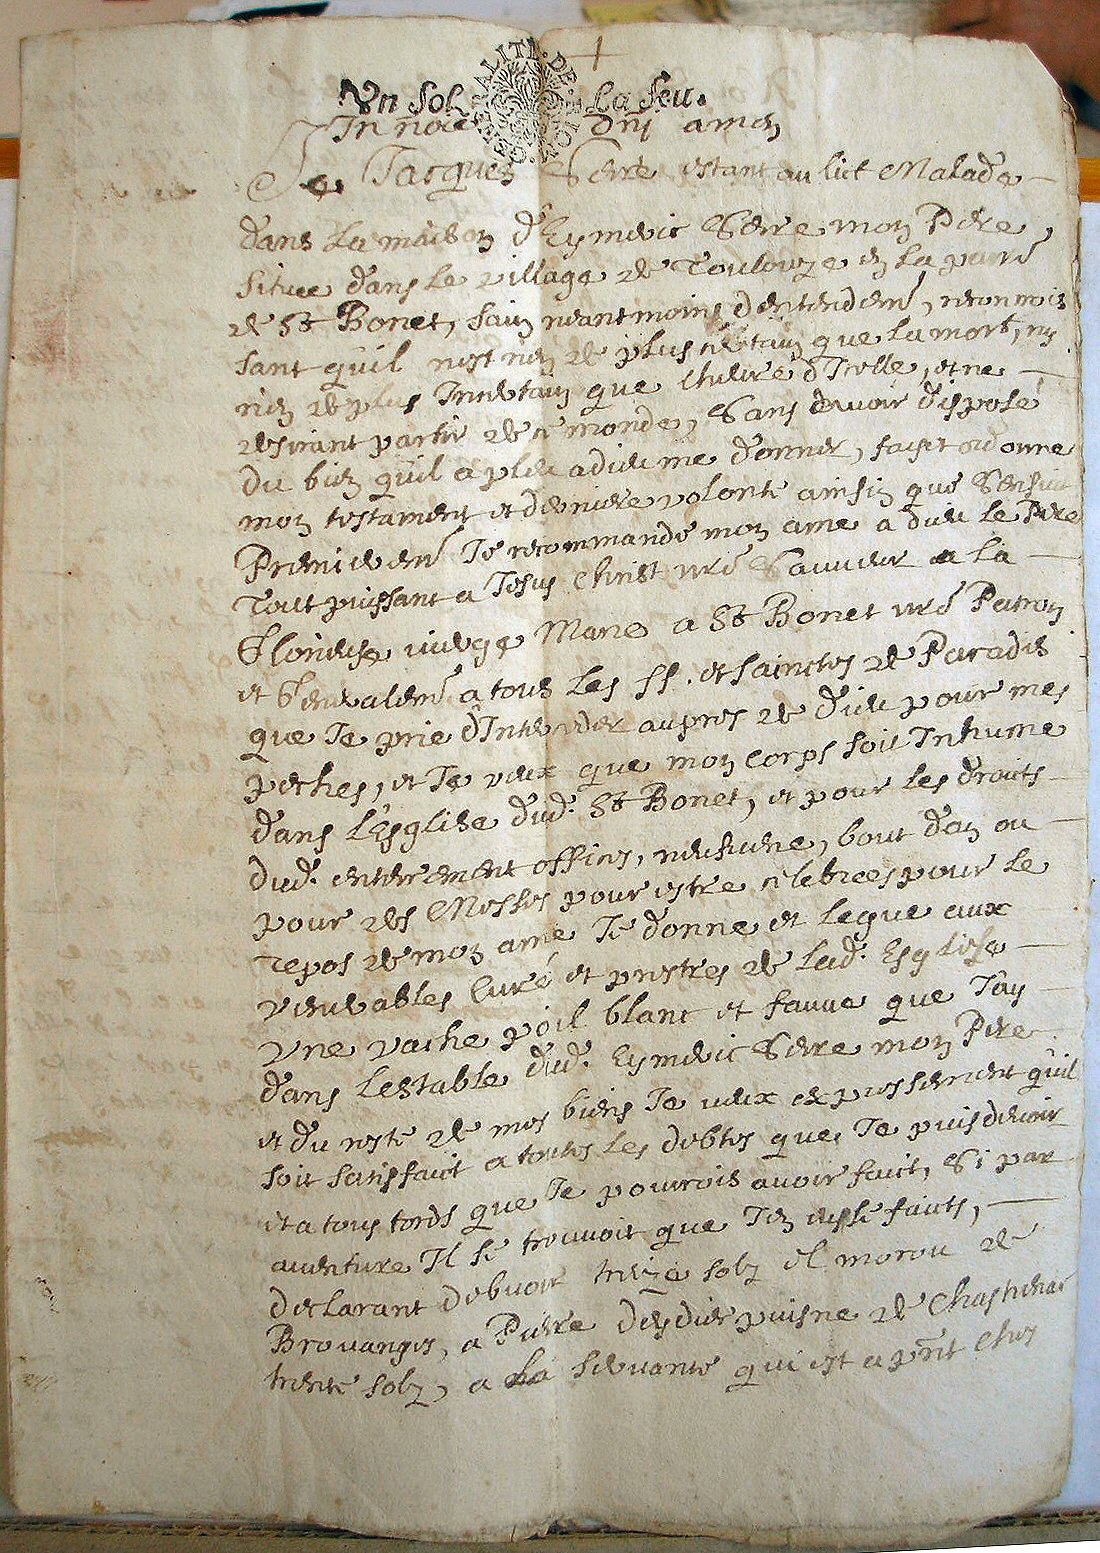 GENERALITE DE RIOM
Un Sol La feu.
In noie dni amen
Je Jacques Serre estant au lict Malade
dans La maison d'Eymeric Serre mon Pere,
situee dans le village de Toulouze en La parr̃e
de St Bonet, sain neantmoins d'entendem̃t, reconnois
sant qu'il n'est rien de plus certain que La mort, ny
rien de plus Incertain que l'heure d'Icelle, et ne
desirant partir de ce monde, Sans avoir disposé
du bien qu'il a pleu a dieu me donner, fais et ordonne
mon testament et derniere volonté ainsin que S'ensuit
Premierem̃t Je recommande mon ame a dieu Le Pere
Tout puissant a Jesus Christ nr̃e Sauveur a La
Glorieuse vierge Marie a St Bonet nr̃e Patron
et Generalem̃t a tous Les SS. et sainctes de Paradis
que Je prie d'Interceder aupres de dieu pour mes
peches, et Je veux que mon corps soit Inhume
dans l'Esglise dud. St Bonet, et pour les droits
dud. enterrement offices, neufvene, bout d'an ou
pour des Messes pour estre celebrees pour le
repos de mon ame Je donne et legue aux
venerables Curé et prestres de Lad. Esglise
une vache poil blanc et fauve que J'ay
dans L'estable dud. Eymeric Serre mon Pere
et du reste de mes biens Je veux expressement qu'il
soit satisfaict a toutes Les debtes que Je puis devoir
et a tous tords que Je pourrois avoir faict, Si par
aventure Il se trouvoit que J'en eusse faicts,
declarant debvoir treize solz el morou de
Brouanges, a Pierre deydier puisne de Chastenac
trente solz, a La servante qui est a pn̄t ches